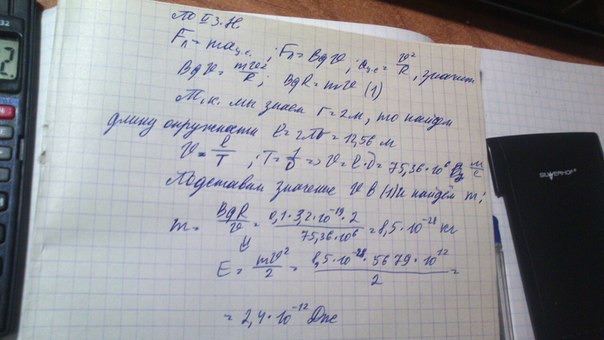 По II З.Н.
Fл = maц.с. ; Fл = Bqv ; aц.с = v²/R, значит
Bqv = mv²/R ; BqR = mv (1)
Т.к. мы знаем r = 2м, то найдем
длину окружности l = 2πr = 12,56 м
v = l/T ; T = 1/ν => v = l·ν = 75,36·10⁶ м/с
Подставим значение v в (1) и найдём m:
m = BqR/v = 0,1·3,2·10⁻¹⁹·2/75,36·10⁶ = 8,5·10⁻²⁸ кг
E = mv²/2 = 8,5·10⁻²⁸·5679·10¹²/2 =
= 2,4·10⁻¹² Дж
SILVERHOF